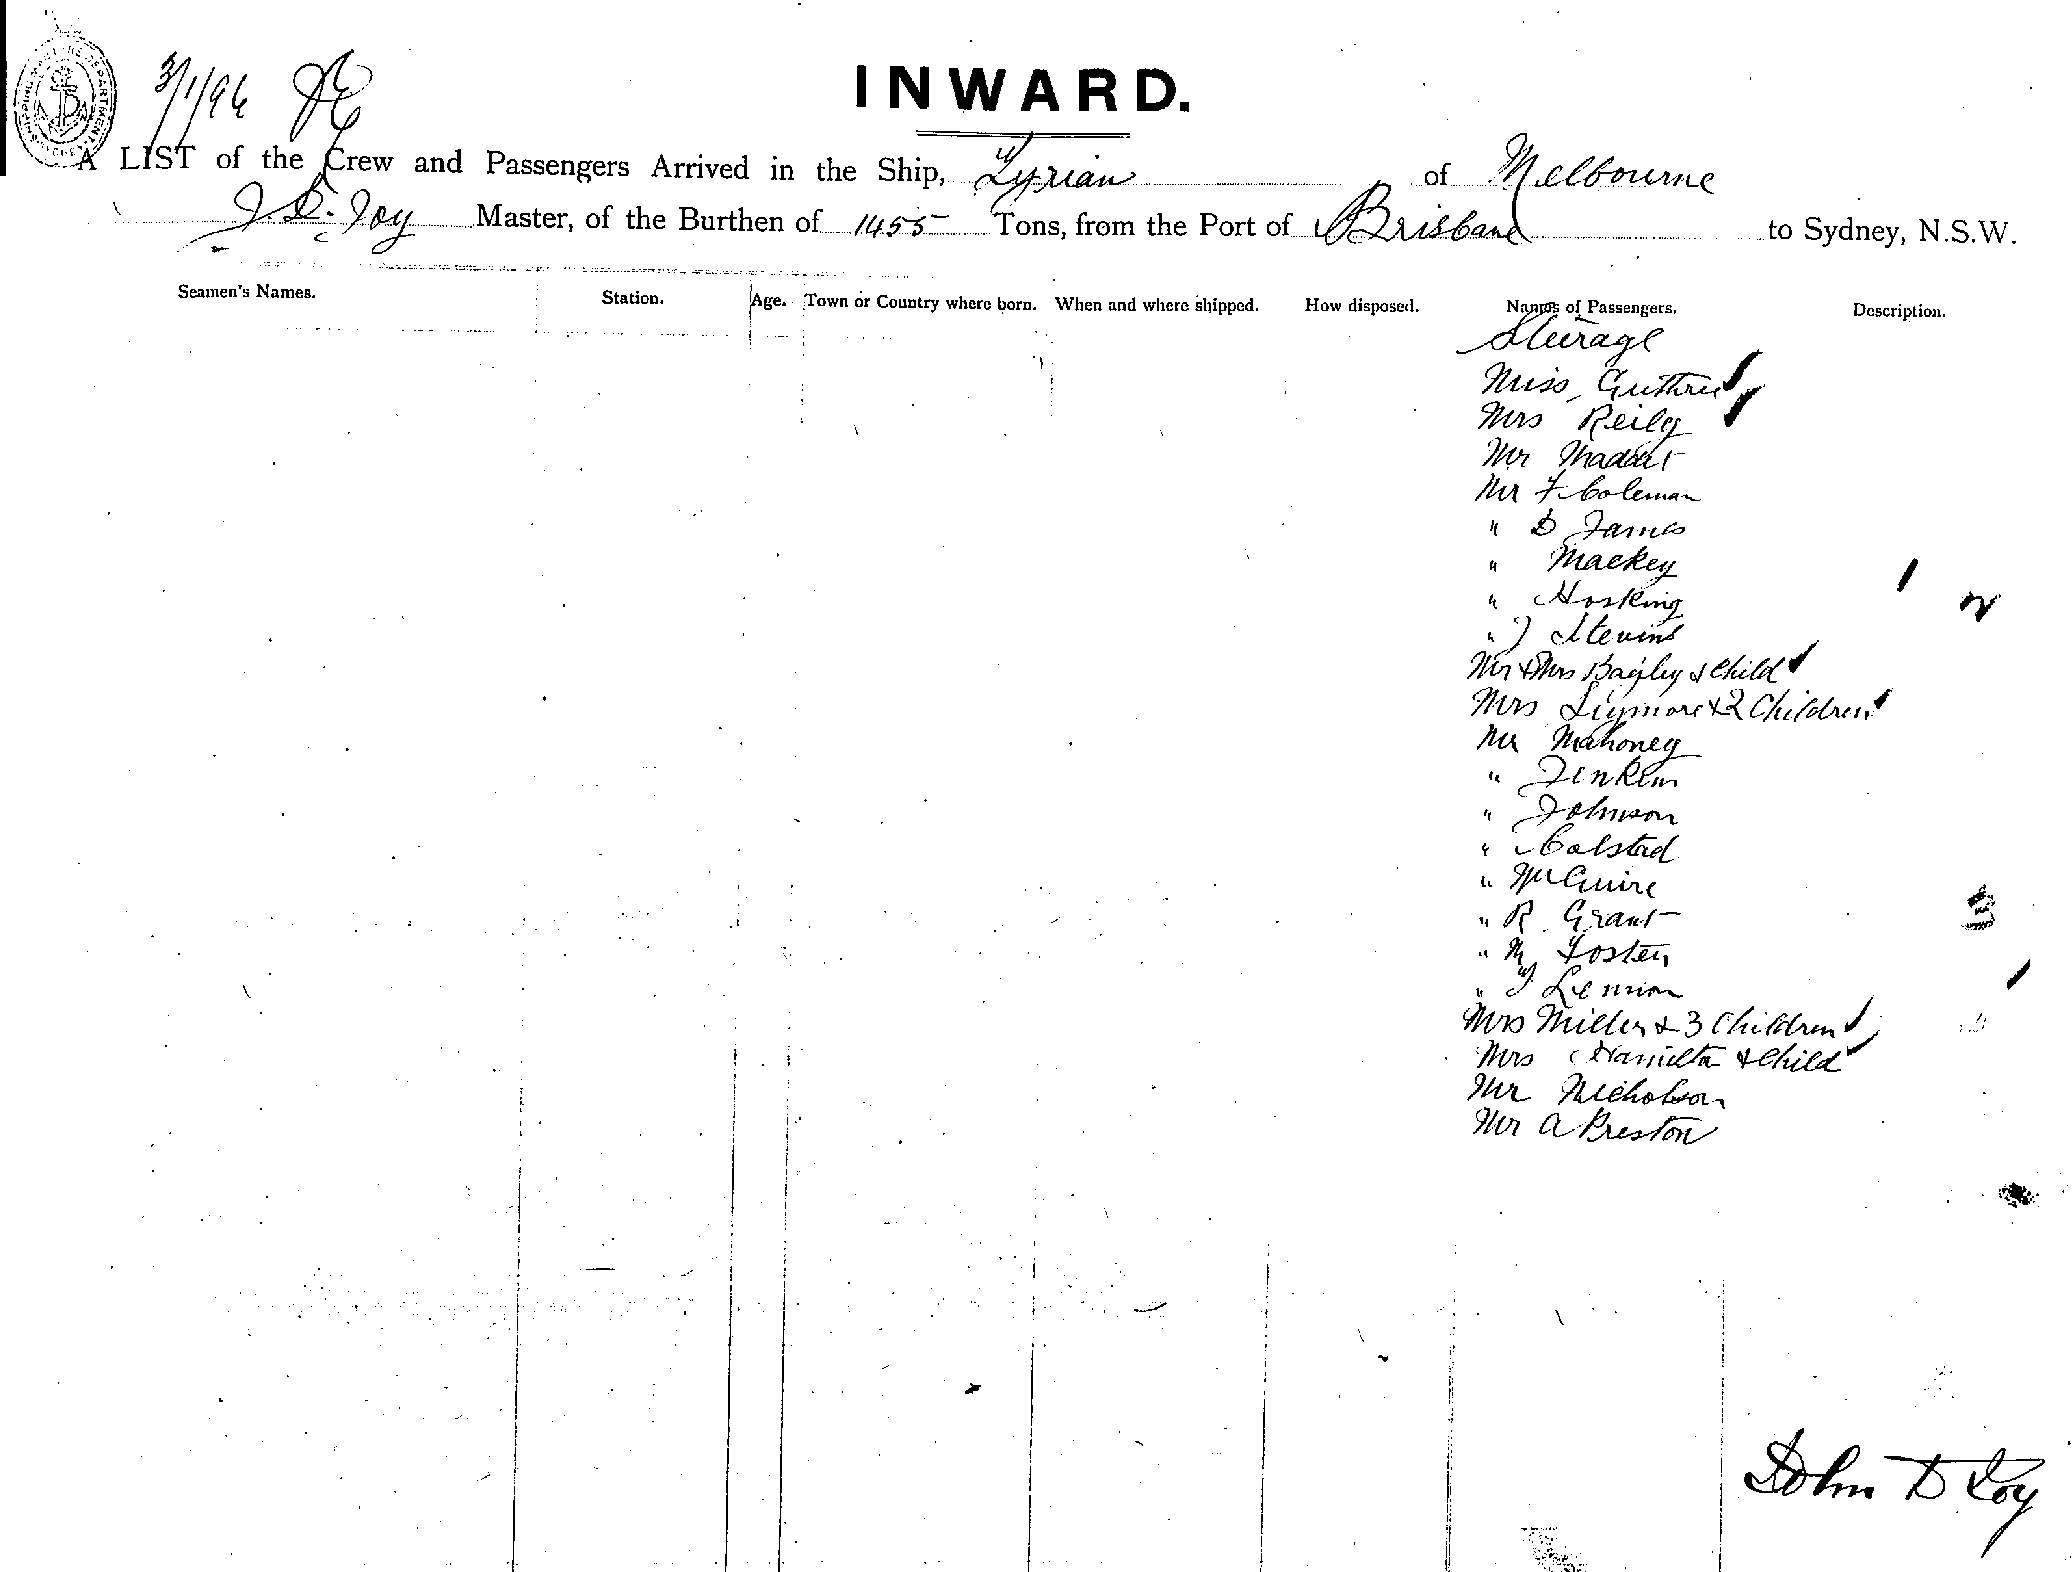 3/1/96
INWARD.
A LIST of the Crew and Passengers Arrived in the Ship, Tyrian of Melbourne
J. D. Joy Master, of the Burthen of 1455 Tons, from the Port of Brisbane to Sydney, N.S.W.
Seamen's Names. Station. Age. Town or Country where born. When and where shipped. How disposed. Names of Passengers. Description.
Steerage
Miss Guthrie
Mrs Reily
Mr
Mr F Coleman
" D James
" Mackey
" Hosking
" J Stevens
Mr & Mrs Bagley & Child
Mrs & 2 Children
Mr Mahoney
" Jenkins
" Johnson
"
" McGuire
" R. Grant
" Foster
" J Lennon
Mrs Miller & 3 Children
Mrs Hamilton & Child
Mr Nicholson
Mr A Preston
1
2
3
1
John D Joy